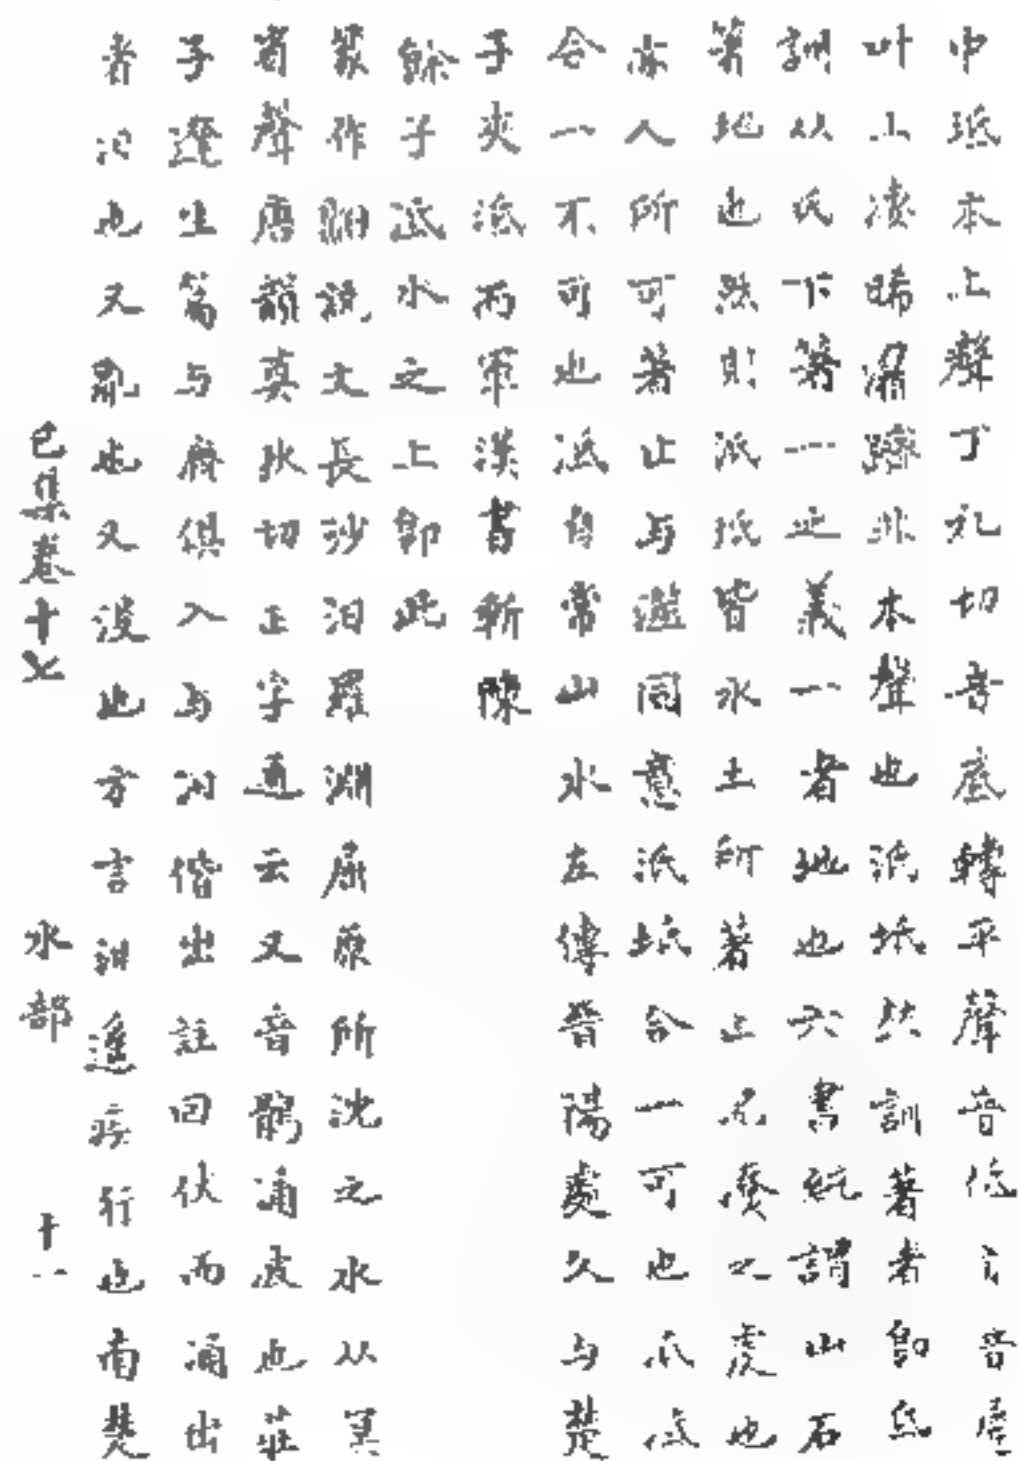 中坻本上聲丁礼切音底轉平聲音低言音
叶上凄晞湄躋非本聲也泜坻然訓著者即氐
訓从氏下著一止義一者地也六書統謂山石
著地也然則泜坻皆水土所著止
人所可著止与濫同意泜坻合一可也
合一不可也泜自常山水左傳晉陽處父与楚
子夾泜而軍漢書斬陳
餘子泜水之上即此
篆作 說文長沙汨羅淵屈原所沈之水从冥
省聲唐韻莫狄切正字通云又音鶻涌波也莊
子達生篇与齊俱入与汩偕出註回伏而涌出
者汩也又亂也又没也方言汩遥疾行也南楚
巳集卷十七 水部 十一